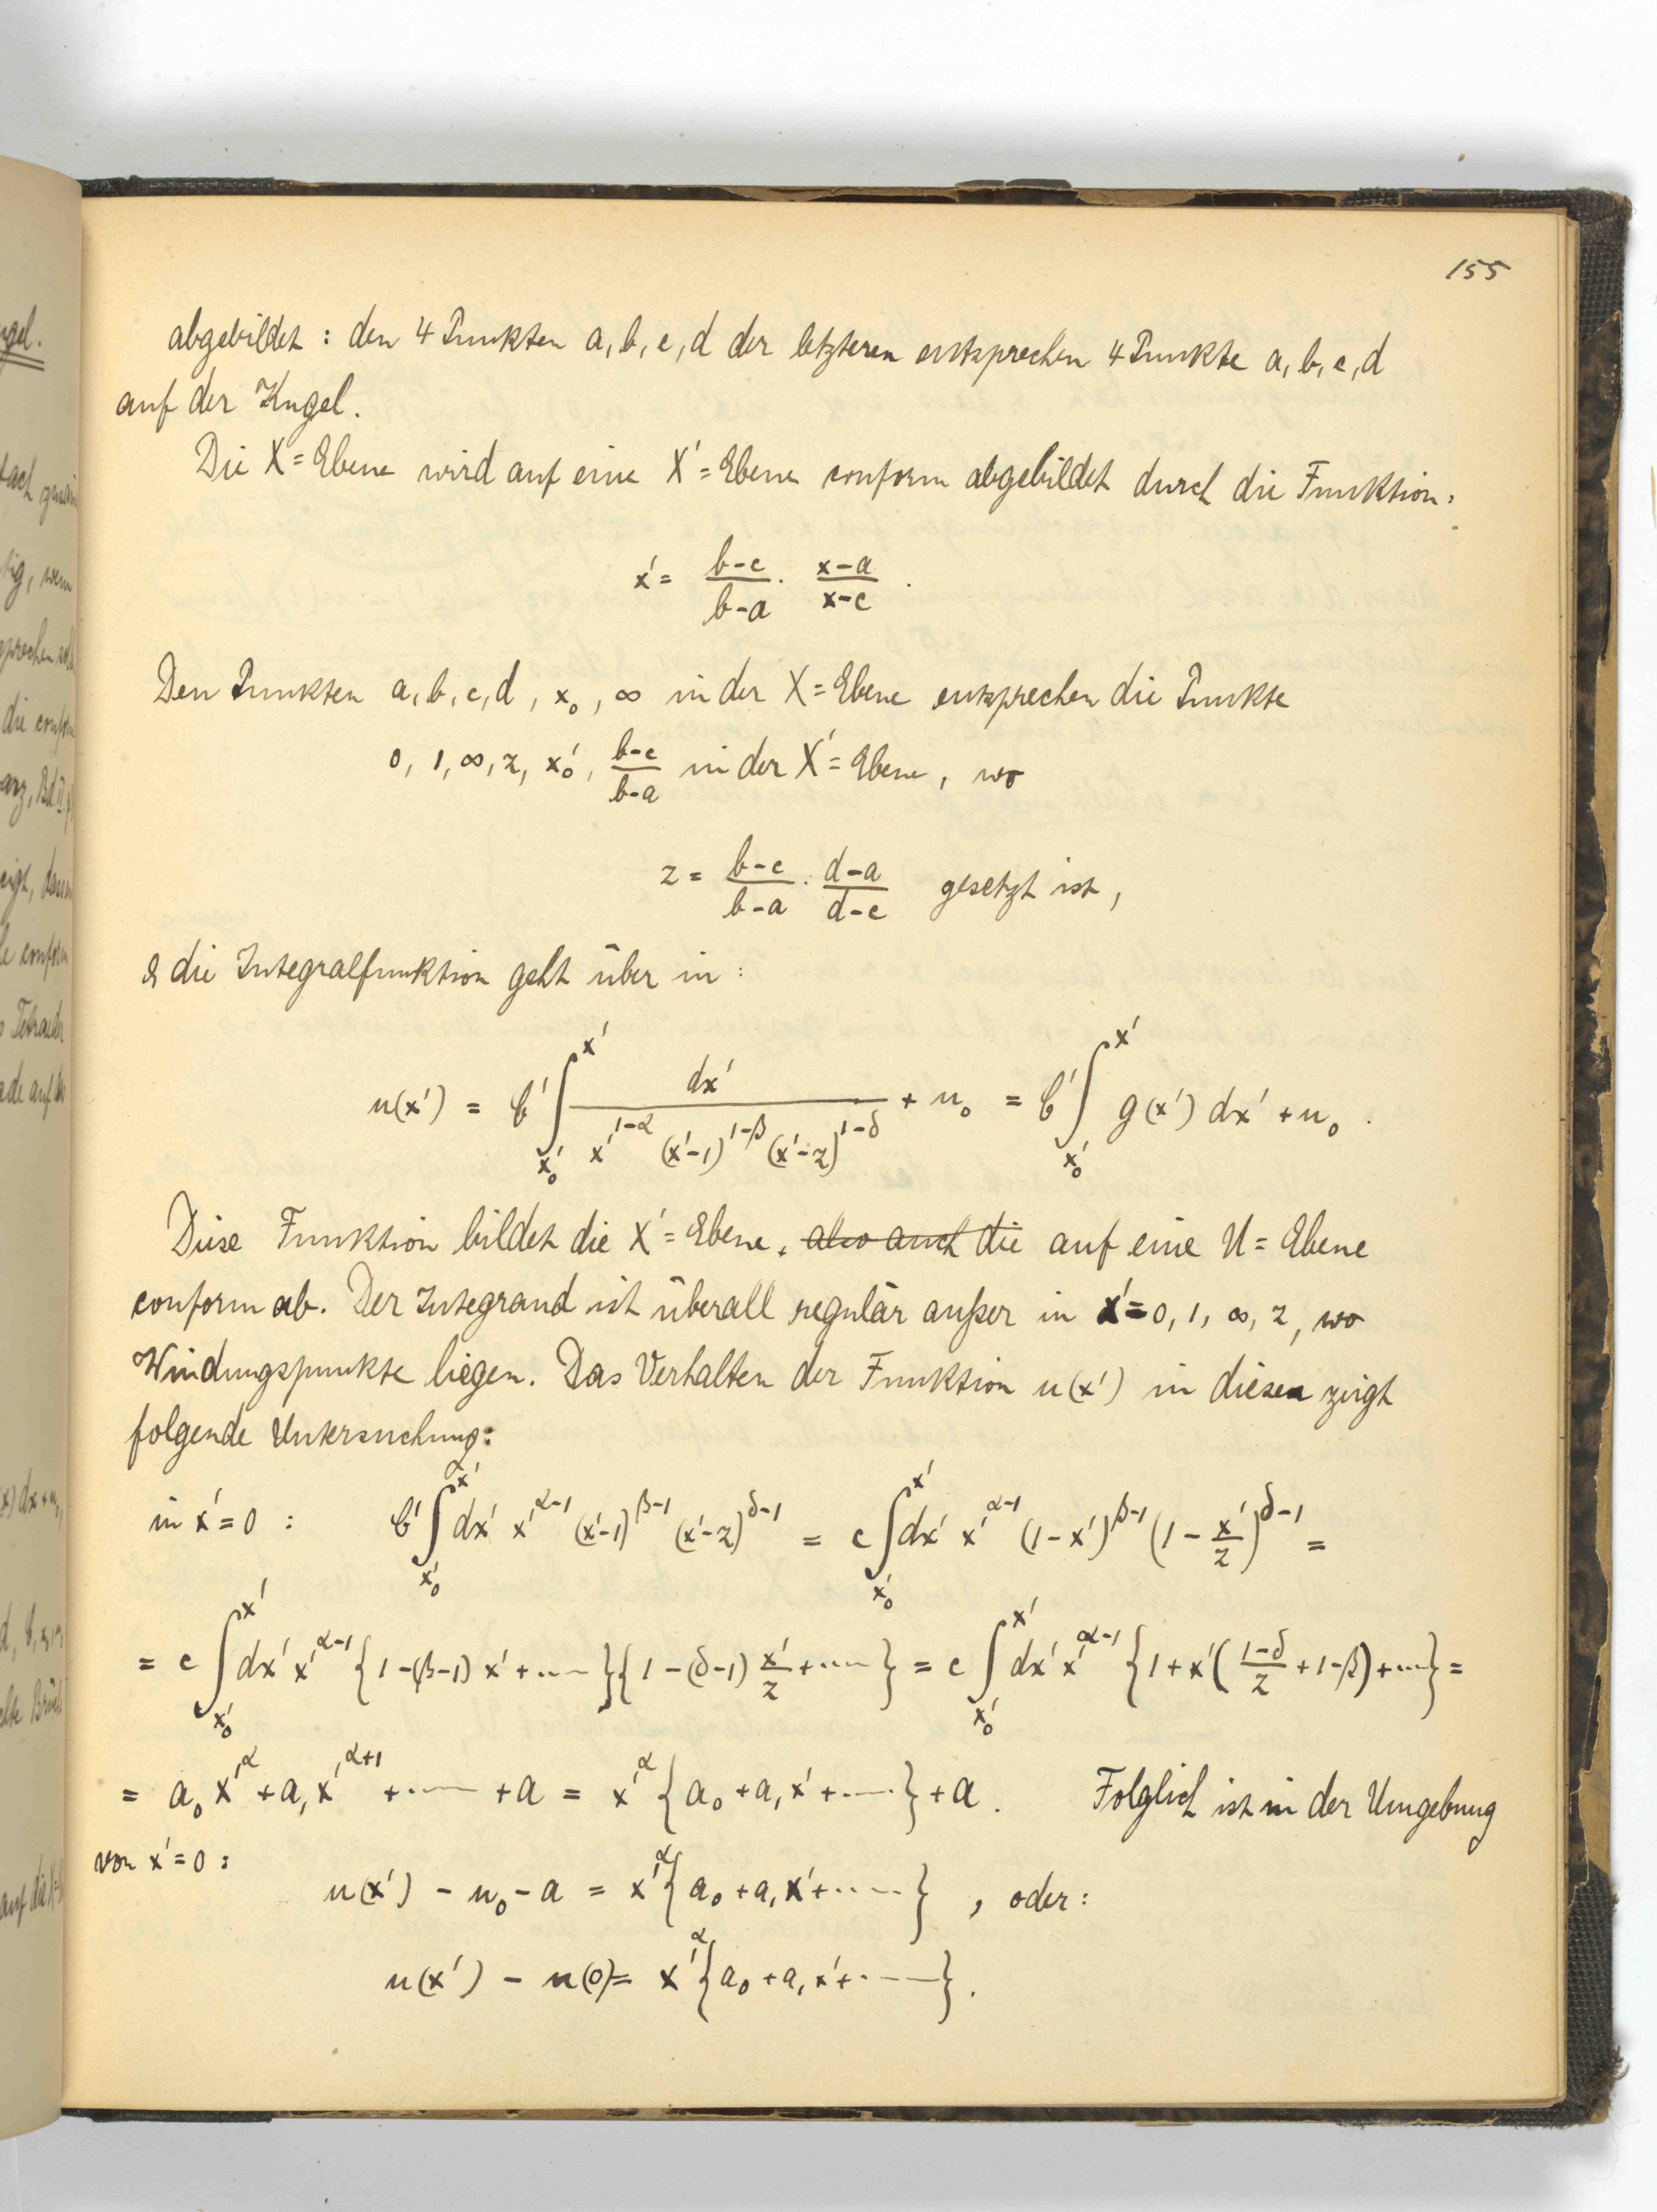 155
abgebildet : den 4 Punkten a, b, c, d der letzteren entsprechen 4 Punkte a, b, c, d
auf der Kugel.
Die X=Ebene wird auf eine X'=Ebene conform abgebildet durch die Funktion:
x' = (b-c)/(b-a) · (x-a)/(x-c) .
Den Punkten a, b, c, d, x₀, ∞ in der X=Ebene entsprechen die Punkte
0, 1, ∞, z, x₀', (b-c)/(b-a) in der X'=Ebene, wo
z = (b-c)/(b-a) · (d-a)/(d-c) gesetzt ist,
& die Integralfunktion geht über in :
u(x') = b' ∫_{x₀'}^{x'} dx' / (x'^{1-α} (x'-1)^{1-β} (x'-z)^{1-δ}) + u₀ = b' ∫_{x₀'}^{x'} g(x') dx' + u₀ .
Diese Funktion bildet die X'=Ebene, also auch die auf eine U=Ebene
conform ab. Der Integrand ist überall regulär außer in x'=0, 1, ∞, z, wo
Windungspunkte liegen. Das Verhalten der Funktion u(x') in diesen zeigt
folgende Untersuchung:
in x'=0 : b' ∫_{x₀'}^{x'} dx' x'^{α-1} (x'-1)^{β-1} (x'-z)^{δ-1} = c ∫_{x₀'}^{x'} dx' x'^{α-1} (1-x')^{β-1} (1 - x'/z)^{δ-1} =
= c ∫_{x₀'}^{x'} dx' x'^{α-1} {1-(β-1) x'+····}{1-(δ-1) x'/z +····} = c ∫_{x₀'}^{x'} dx' x'^{α-1} {1+x'((1-δ)/z + 1-β)+···} =
= a₀ x'^α + a₁ x'^{α+1} +···· + a = x'^α {a₀ + a₁ x' +····} + a . Folglich ist in der Umgebung
von x'=0 :
u(x') - u₀ - a = x'^α {a₀ + a₁ x' +····} , oder :
u(x') - u(0) = x'^α {a₀ + a₁ x' +····} .